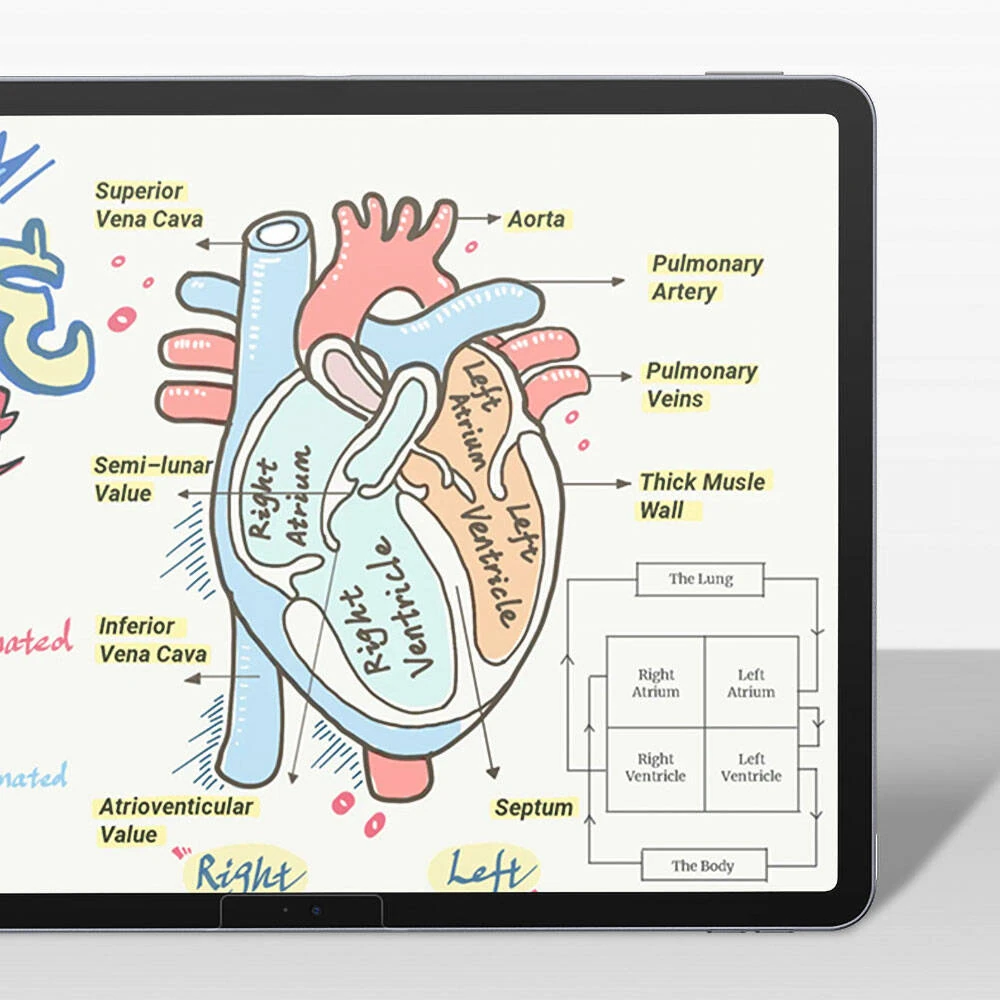 Superior
Vena Cava
Aorta
Pulmonary
Artery
Pulmonary
Veins
Left
Atrium
Right
Atrium
Semi-lunar
Value
Thick Musle
Wall
Left
Ventricle
Right
Ventricle
Inferior
Vena Cava
Atrioventicular
Value
Septum
The Lung
Right
Atrium
Left
Atrium
Right
Ventricle
Left
Ventricle
The Body
Right
Left